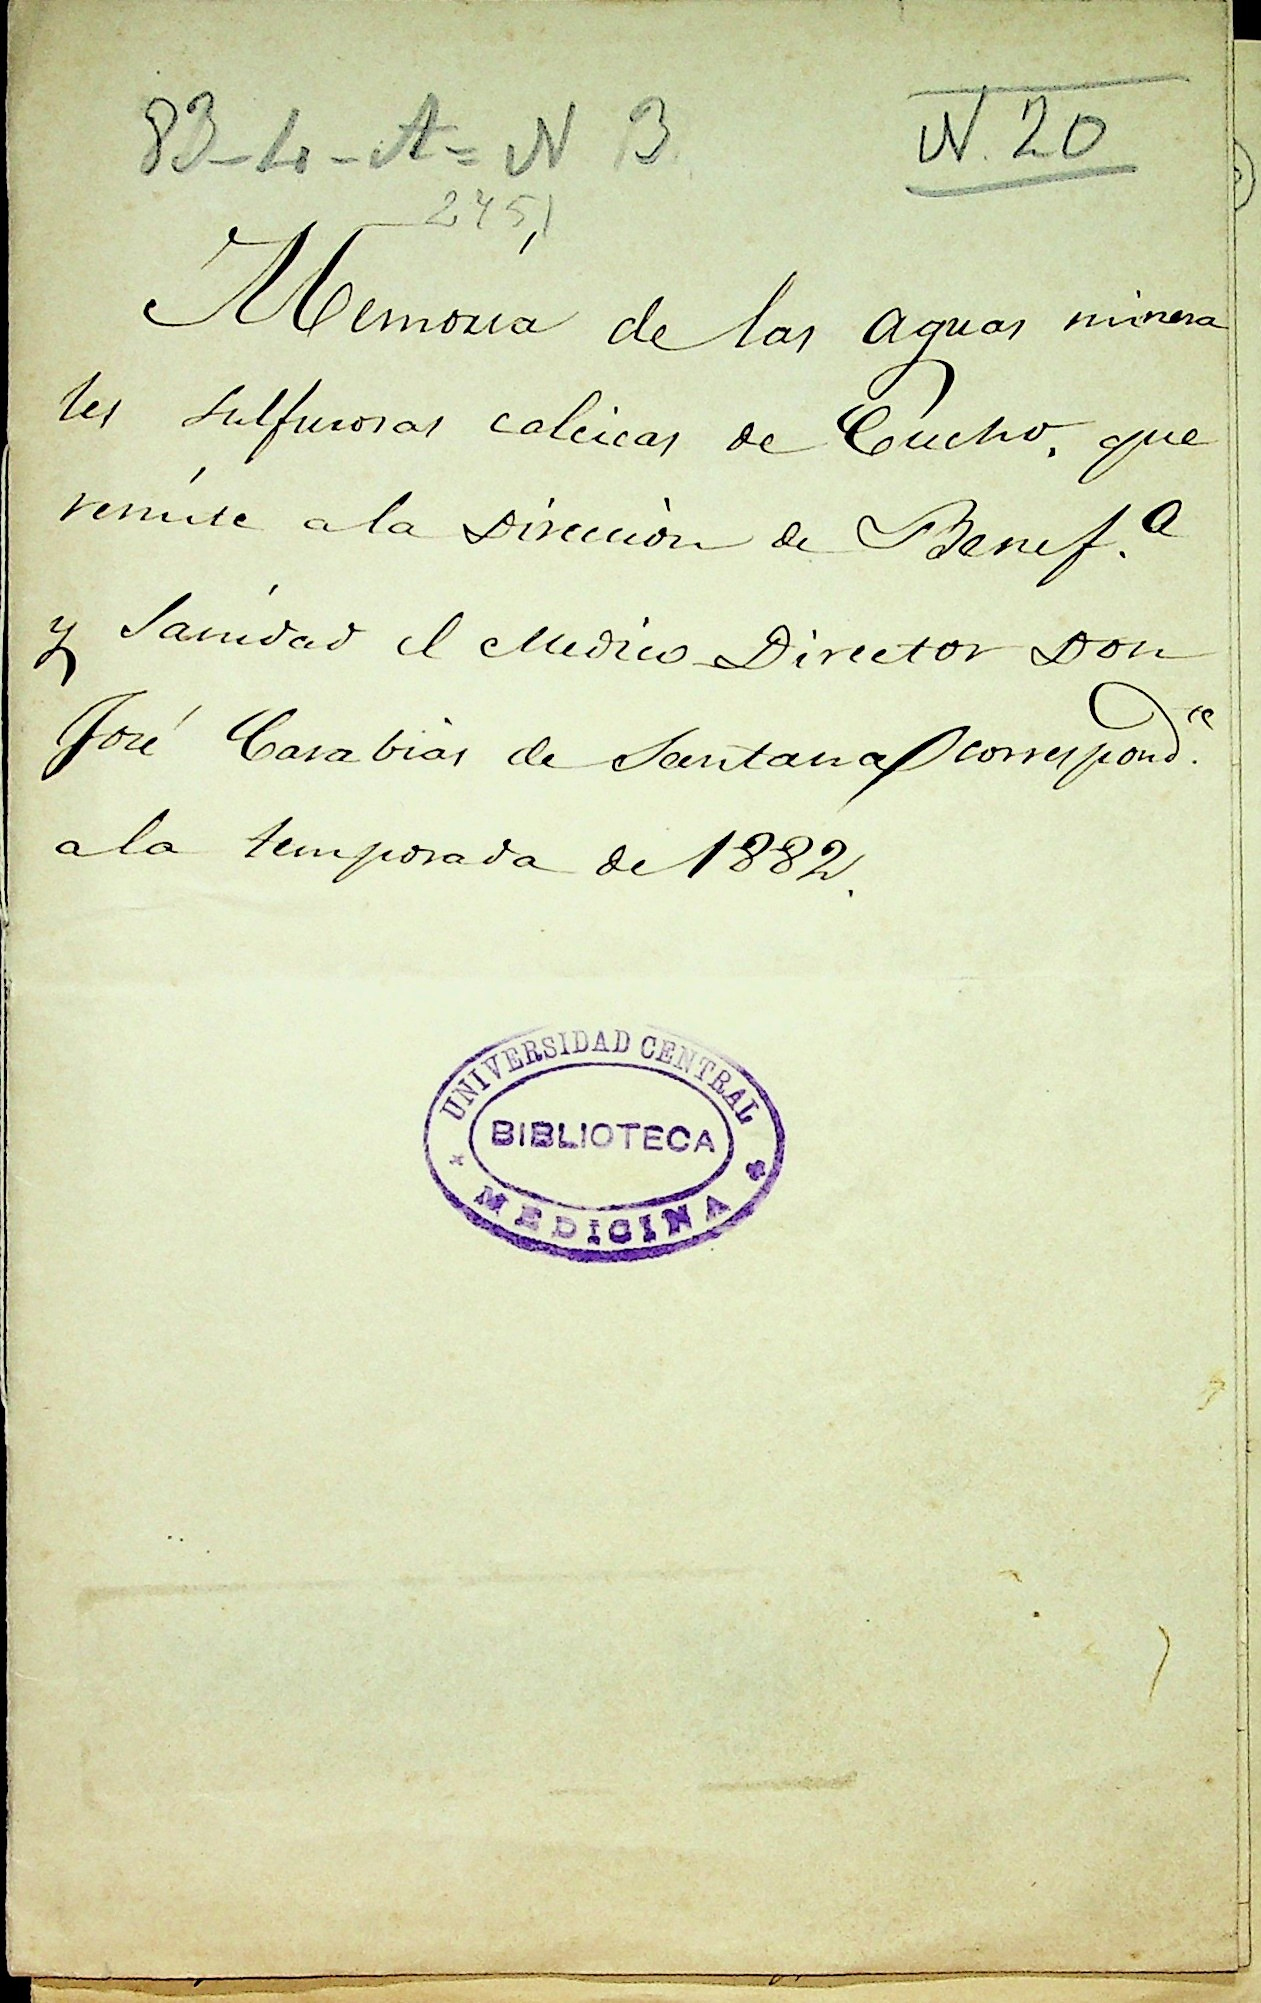 83-4-A=N B.
N. 20
245)
Memoria de las aguas minera
les sulfurosas calcicas de Cucho, que
remite a la Dirección de Benef.a
y Sanidad el Medico Director Don
José Carabias de Santana correspond.te
a la temporada de 1882.
UNIVERSIDAD CENTRAL
BIBLIOTECA
MEDICINA